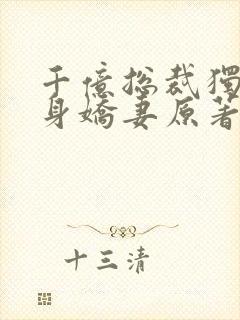 千億総裁獨
身嬌妻原著
十三清